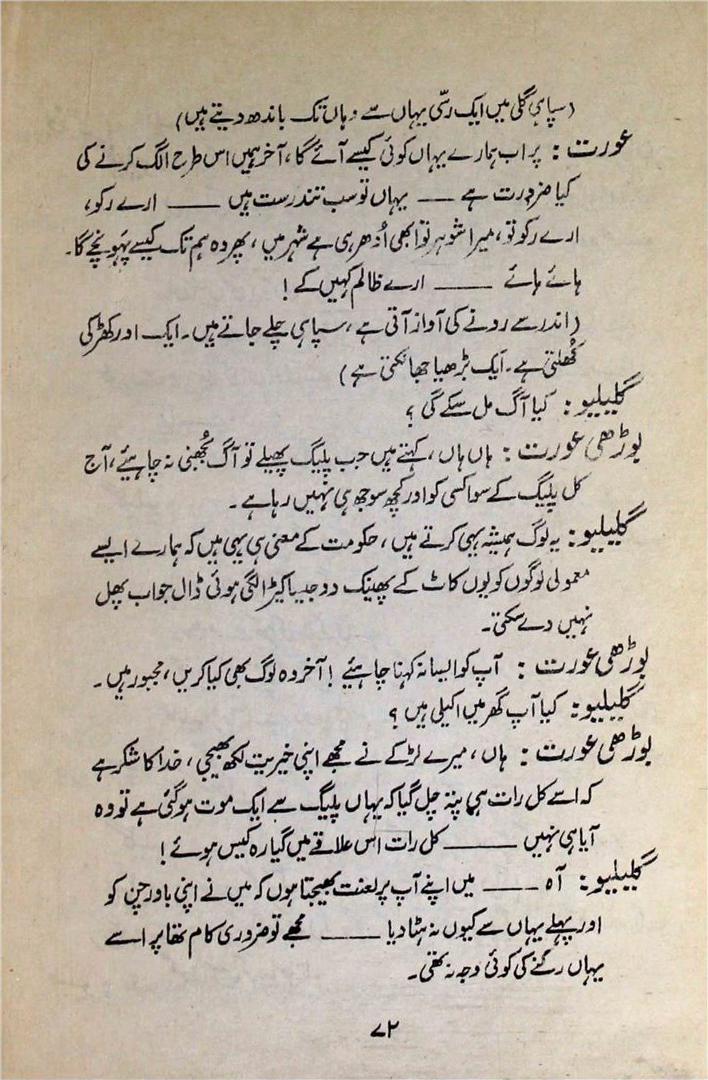 (سپاہی گلی میں ایک رسّی یہاں سے وہاں تک باندھ دیتے ہیں)
عورت : پر اب ہمارے یہاں کوئی کیسے آئے گا، آخر ہمیں اس طرح الگ کرنے کی
کیا ضرورت ہے ـــــ یہاں تو سب تندرست ہیں ـــــ ارے رکو،
ارے رکو تو، میرا شوہر تو ابھی اُدھر ہی ہے شہر میں، پھر وہ ہم تک کیسے پہونچے گا۔
ہائے ہائے ـــــ ارے ظالم کہیں کے !
(اندر سے رونے کی آواز آتی ہے، سپاہی چلے جاتے ہیں۔ ایک اور کھڑکی
کُھلتی ہے۔ ایک بڑھیا جھانکتی ہے)
گلیلیو : کیا آگ مل سکے گی ؟
بوڑھی عورت : ہاں ہاں، کہتے ہیں جب پلیگ پھیلے تو آگ بُجھنی نہ چاہیئے، آج
کل پلیگ کے سوا کسی کو اور کچھ سوجھ ہی نہیں رہا ہے۔
گلیلیو : یہ لوگ ہمیشہ یہی کرتے ہیں، حکومت کے معنی ہی یہی ہیں کہ ہمارے ایسے
معمولی لوگوں کو یوں کاٹ کے پھینک دو جیسا کیڑا لگی ہوئی ڈال جو اب پھل
نہیں دے سکتی۔
بوڑھی عورت : آپ کو ایسا نہ کہنا چاہیئے ! آخر وہ لوگ بھی کیا کریں، مجبور ہیں۔
گلیلیو : کیا آپ گھر میں اکیلی ہیں ؟
بوڑھی عورت : ہاں، میرے لڑکے نے مجھے اپنی خیریت لکھ بھیجی، خدا کا شکر ہے
کہ اسے کل رات ہی پتہ چل گیا کہ یہاں پلیگ سے ایک موت ہو گئی ہے تو وہ
آیا ہی نہیں ـــــ کل رات اس علاقے میں گیارہ کیس ہوئے !
گلیلیو : آہ ـــــ میں اپنے آپ پر لعنت بھیجتا ہوں کہ میں نے اپنی باورچن کو
اور پہلے یہاں سے کیوں نہ ہٹا دیا ـــــ مجھے تو ضروری کام تھا پر اسے
یہاں رکنے کی کوئی وجہ نہ تھی۔
۷۲